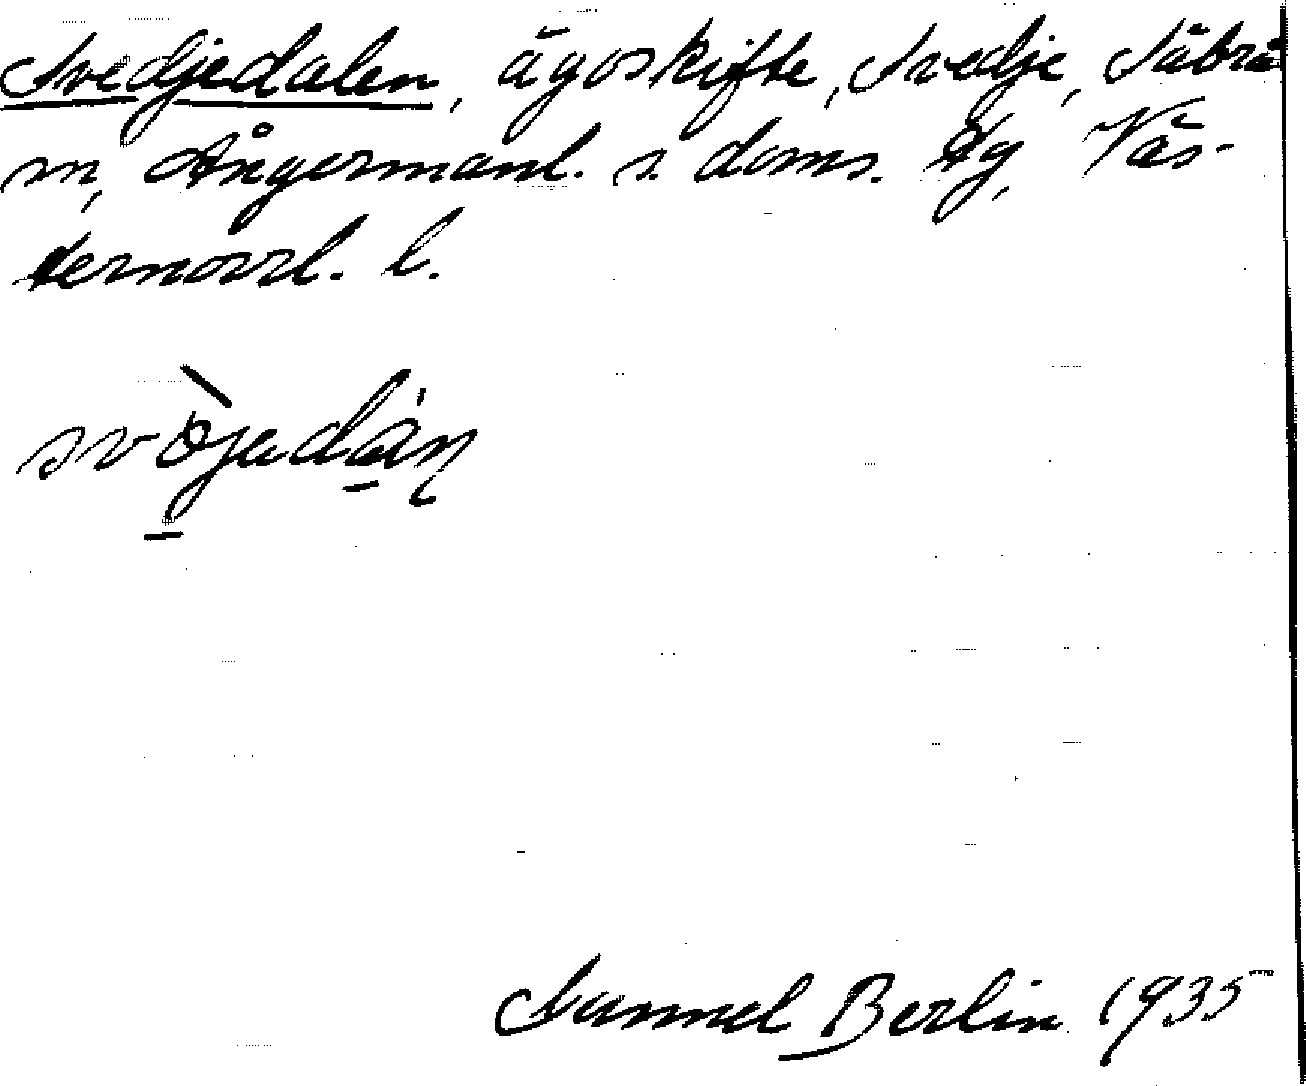 Svedjedalen, ägoskifte, Svedje, Säbrå
sn, Ångermanl. s. doms. tg, Väs-
ternorrl. l.
Samuel Berlin 1935